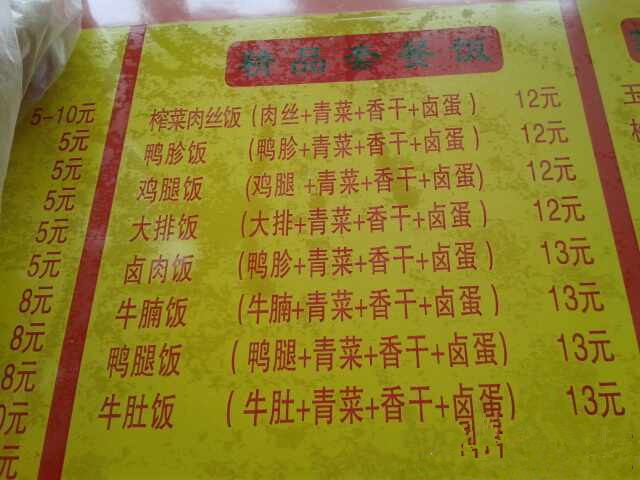 精品套餐饭
5-10元
5元
5元
5元
5元
5元
8元
8元
8元
0元
元
榨菜肉丝饭 (肉丝+青菜+香干+卤蛋) 12元
鸭胗饭 (鸭胗+青菜+香干+卤蛋) 12元
鸡腿饭 (鸡腿+青菜+香干+卤蛋) 12元
大排饭 (大排+青菜+香干+卤蛋) 12元
卤肉饭 (鸭胗+青菜+香干+卤蛋) 13元
牛腩饭 (牛腩+青菜+香干+卤蛋) 13元
鸭腿饭 (鸭腿+青菜+香干+卤蛋) 13元
牛肚饭 (牛肚+青菜+香干+卤蛋) 13元